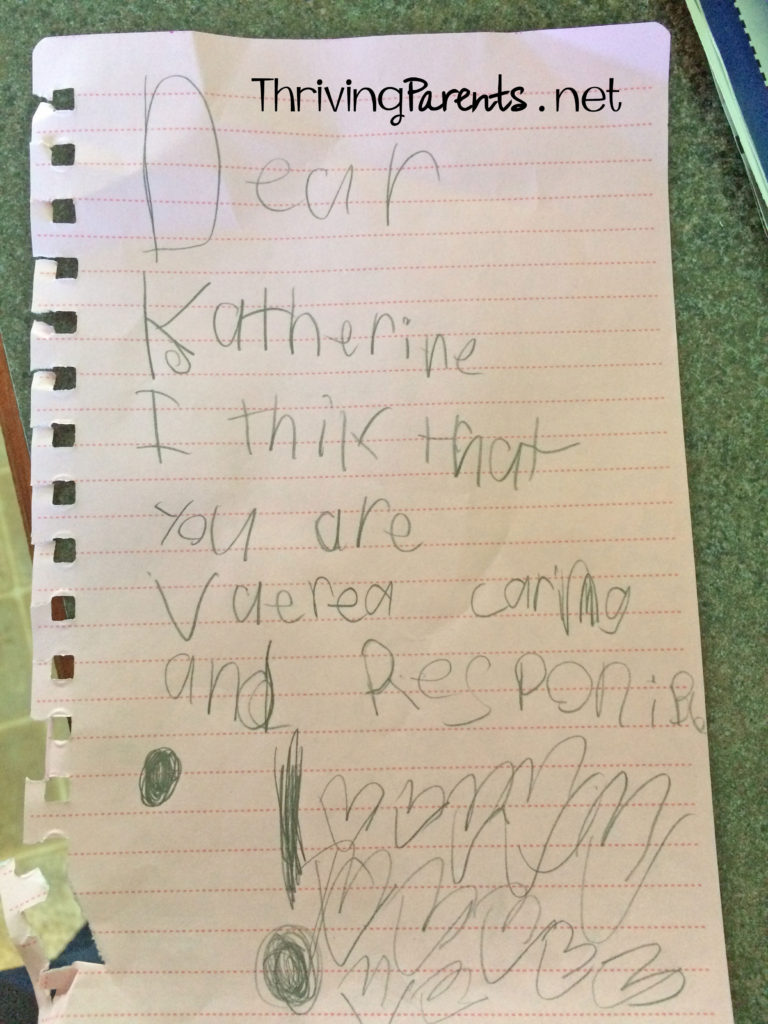 ThrivingParents.net
Dear
Katherine
I thik that
you are
Vaerea caring
and Responisbl